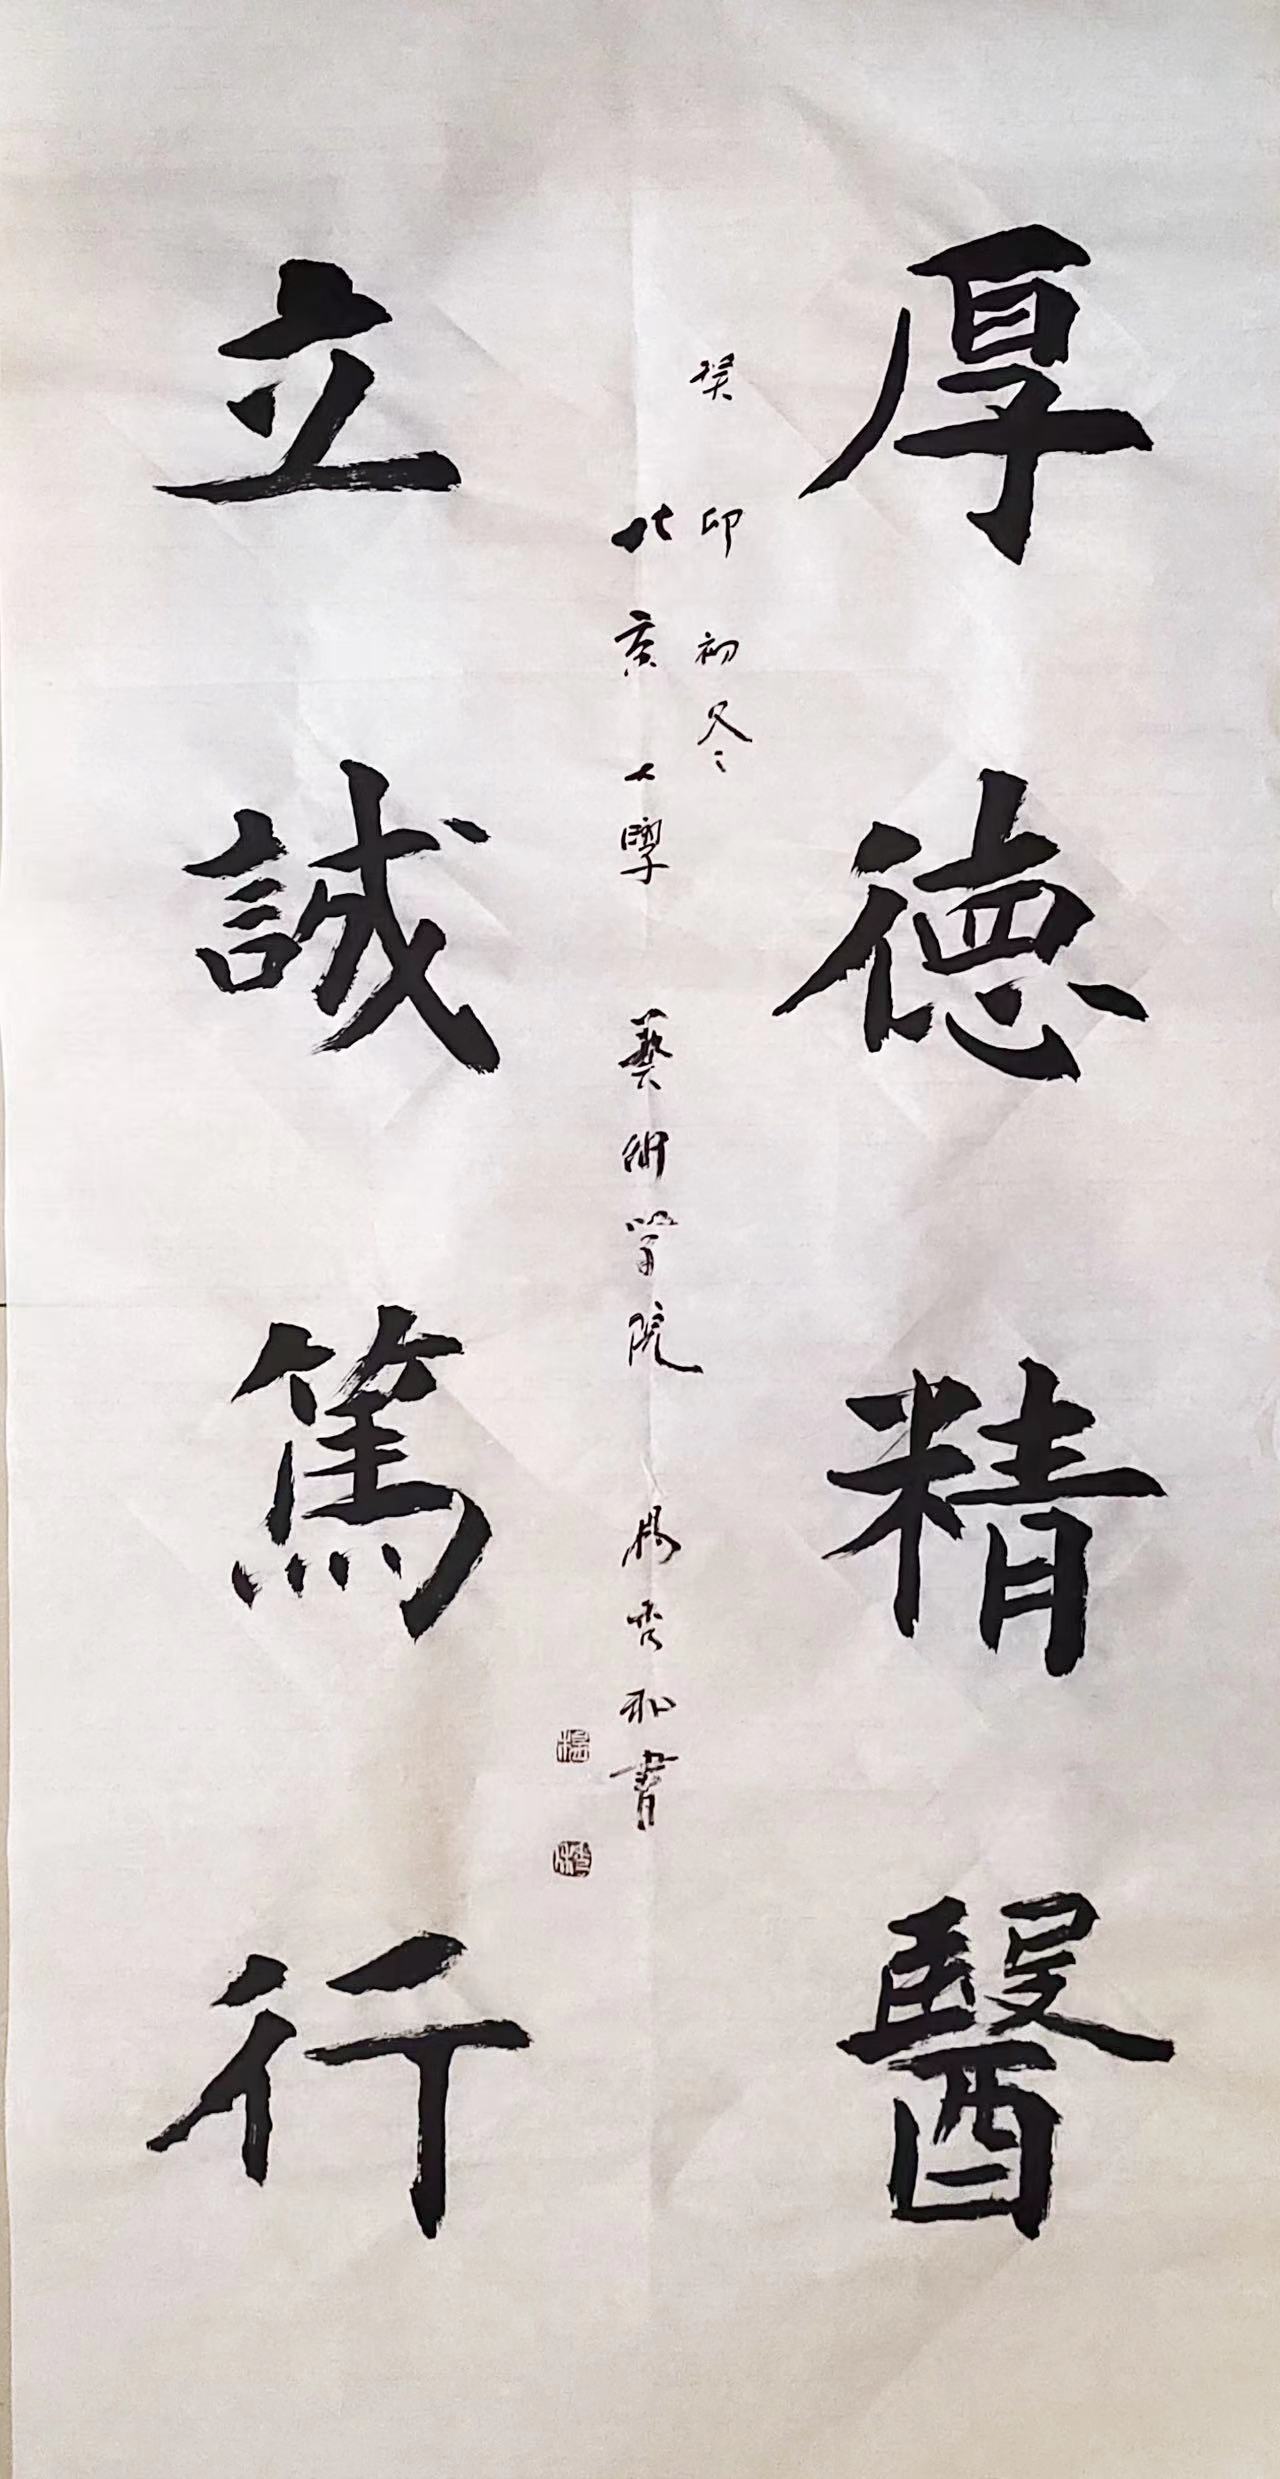 厚德精醫
癸卯初冬
北京大學藝術學院楊秀和書
立誠篤行